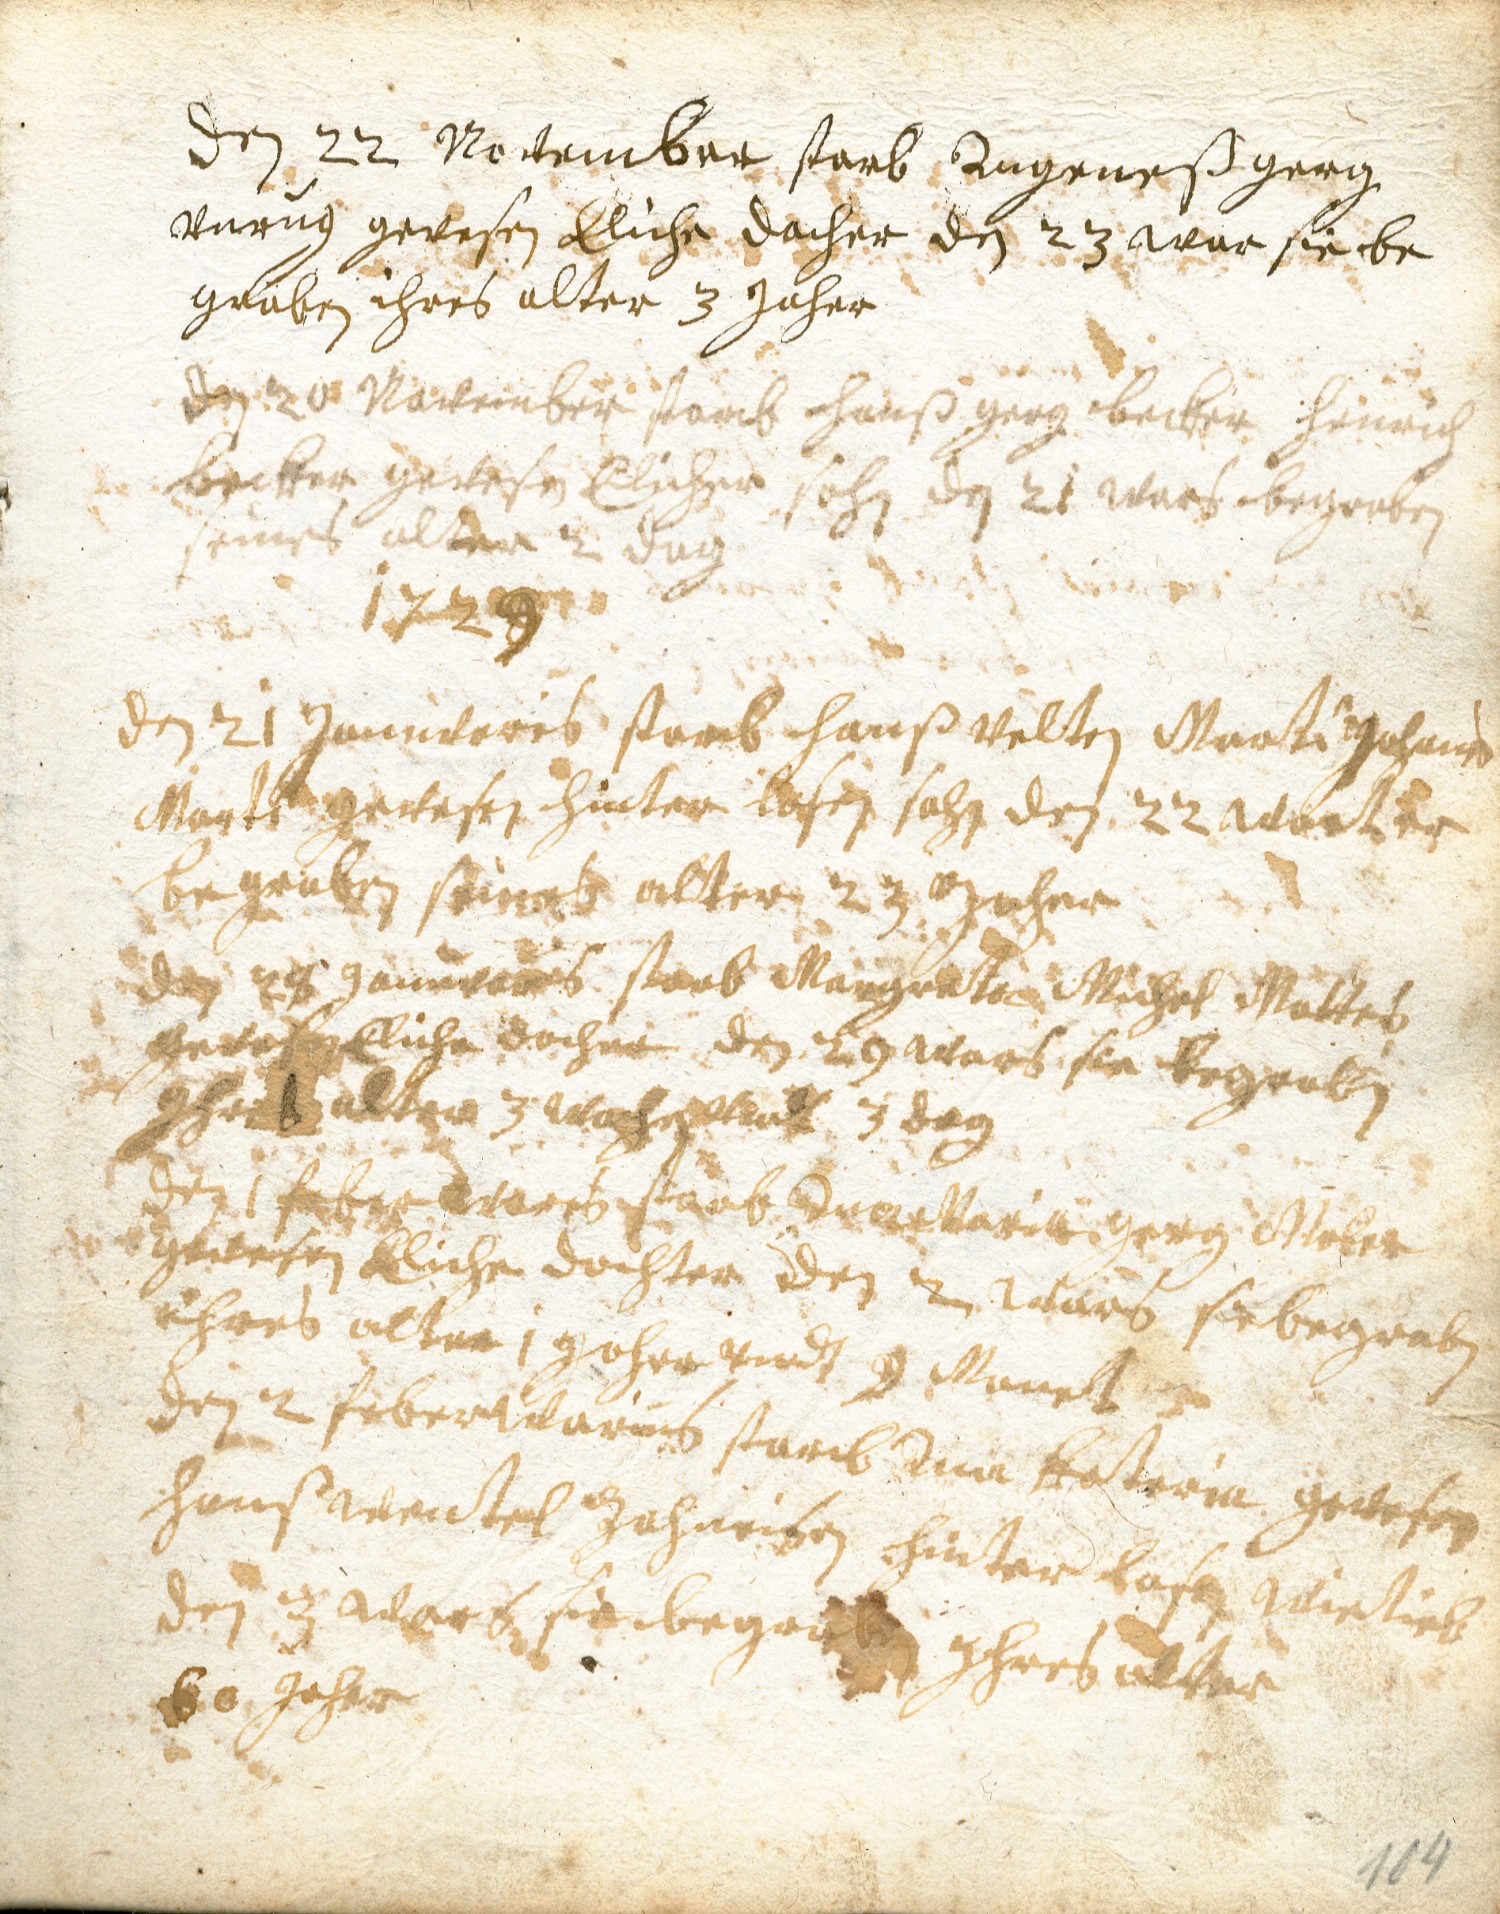 den 22 November starb Angeneß gerg
gewesen Eliche docher den 23 war sie be
graben ihres alter 3 Jaher
den 20 November starb hanß gerg becker henrich
becker gewesen Elicher sohn den 21 wars begraben
seines alter 2 dag
1729
den 21 Januwaris starb hanß velten Marti Johanes
Marti gewesen hinter lasen sohn den 22 wart er
be graben seines alter 23 Jaher
den 28 Januwaris starb Margreta Michel Mattes
gewesen Eliche docher den 29 wars sie begraben
Jhres alter 3 wochen 3 dag
den 1 feberwaris starb Anamaria gerg
gewesen Eliche dochter den 2 wars sie begraben
ihres alter 1 Jaher undt 9 Monet
den 2 feberwarius starb Ana katerin gewesen
hanß wentel hinter lasen
den 3 wars sie begraben Jhres alter
60 Jaher
104